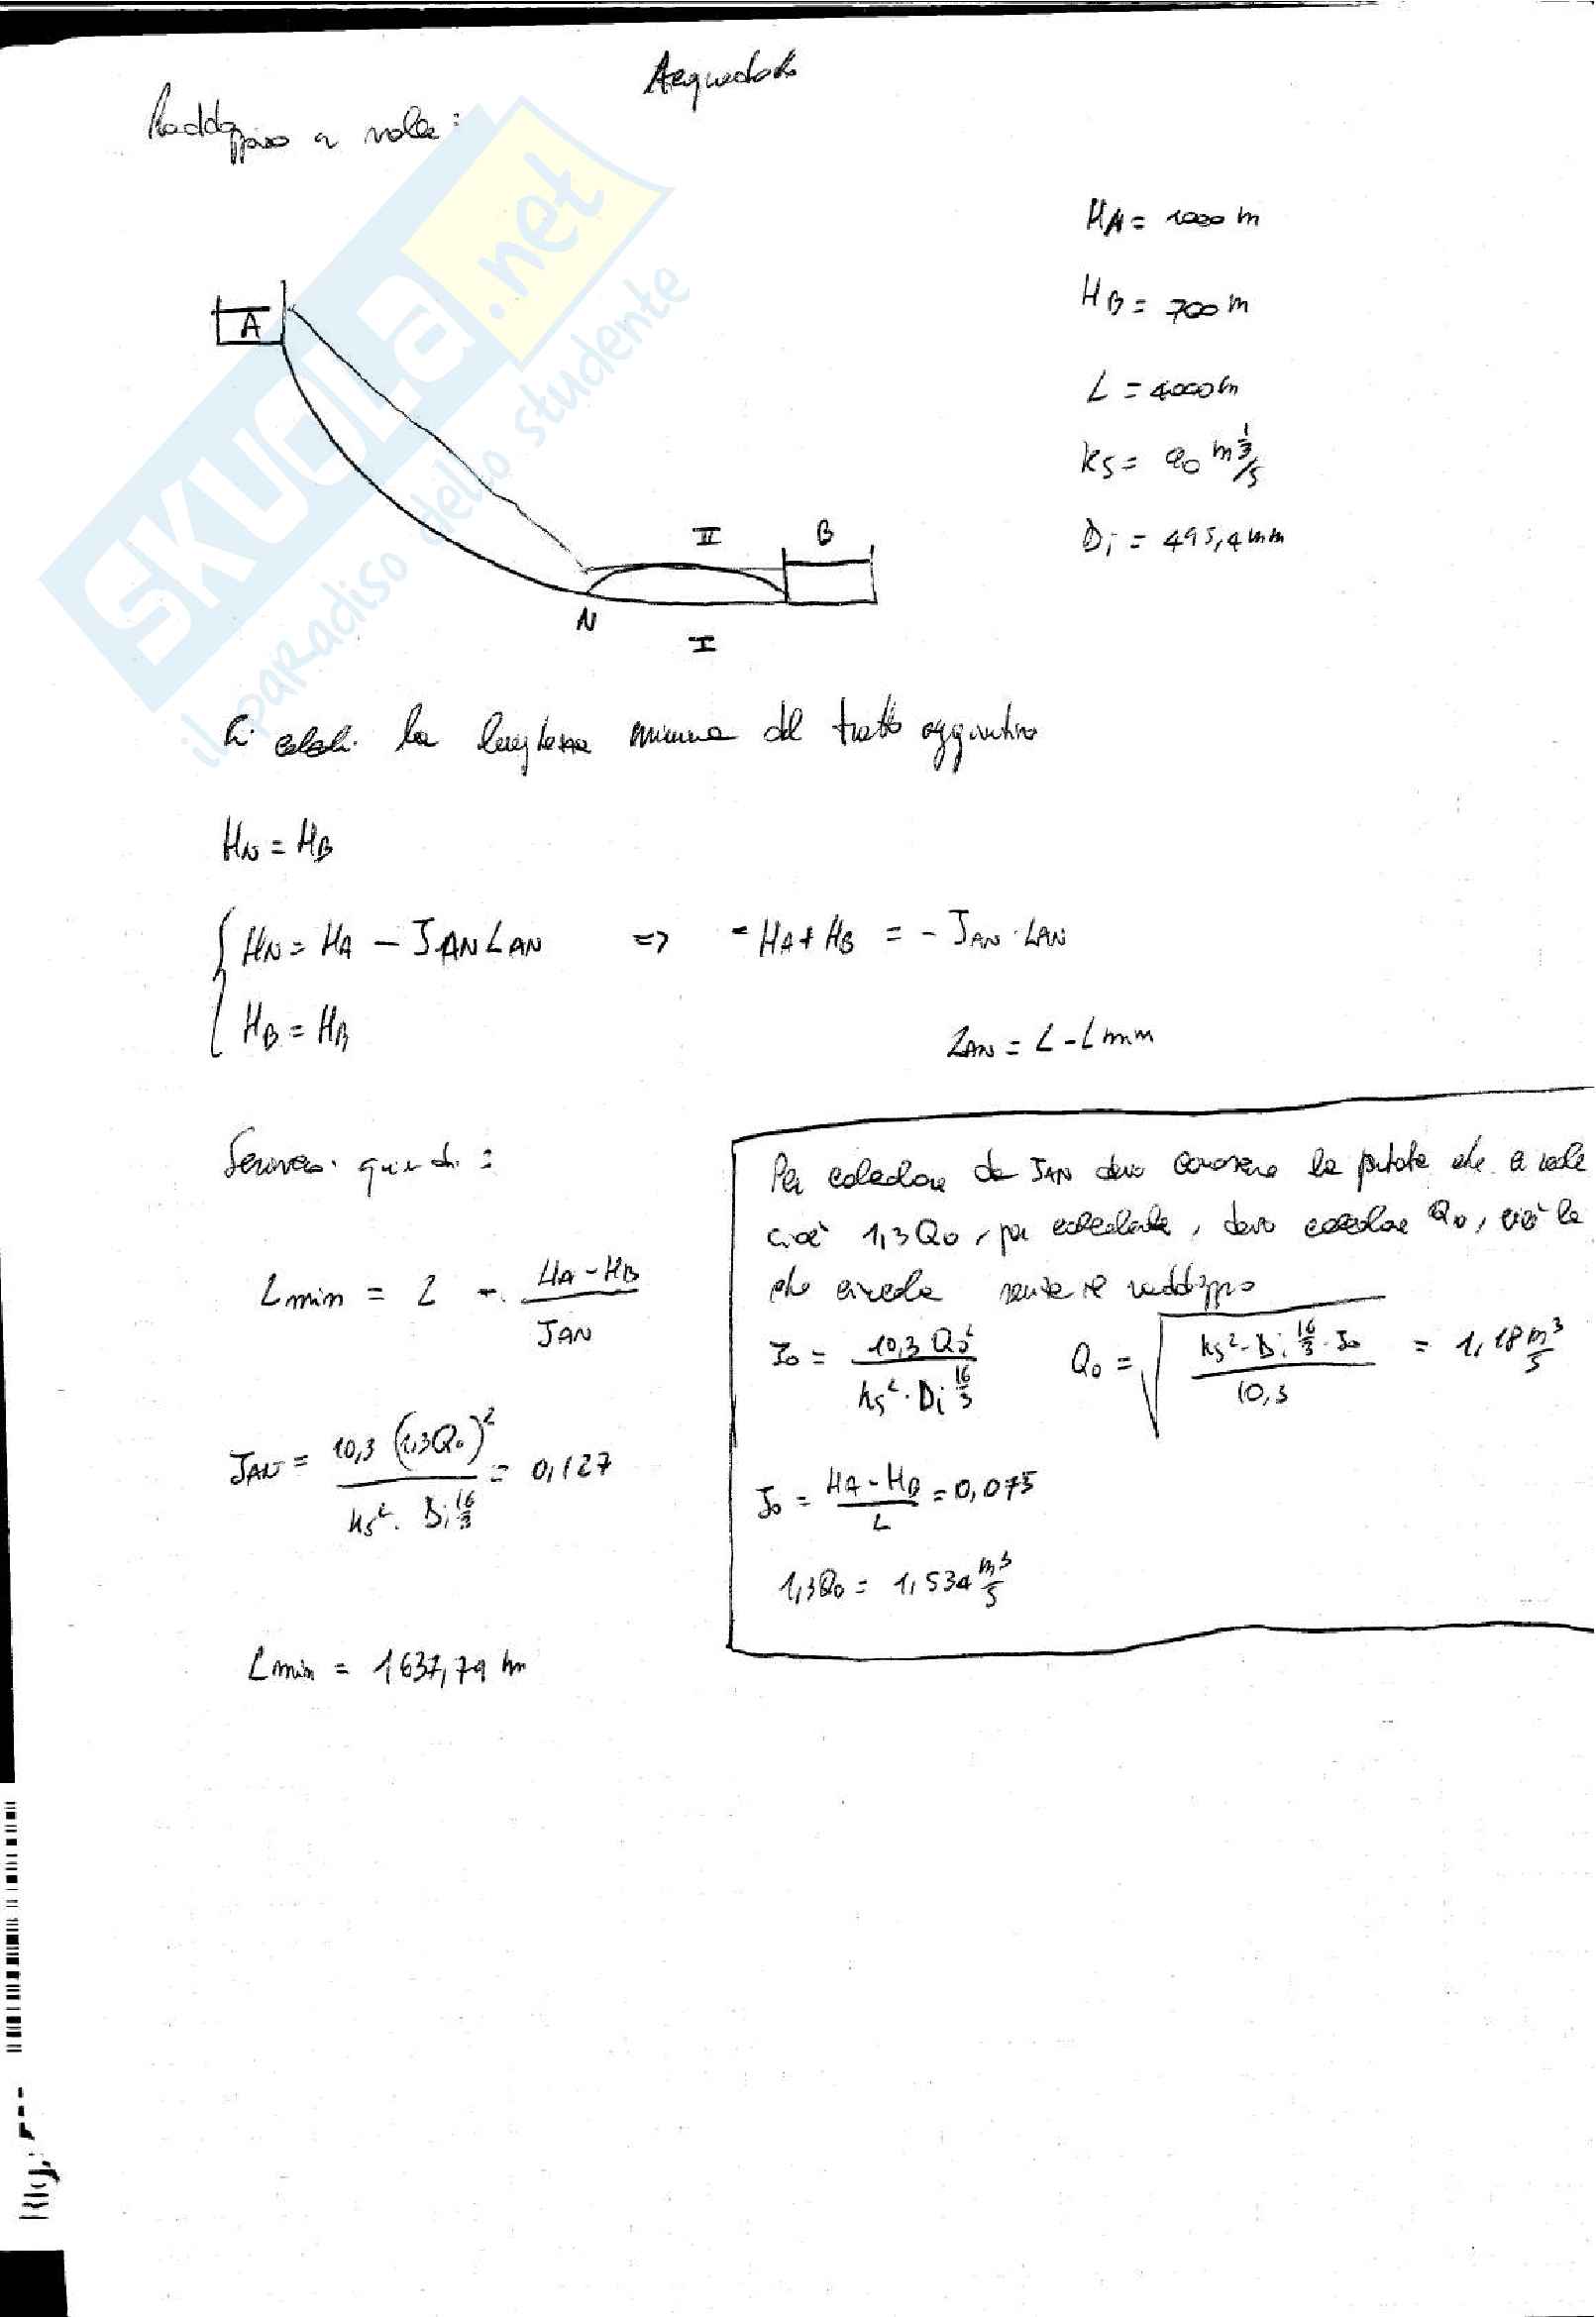 Acquedotto
Raddoppio a valle:
SKUOLA.net
il paradiso dello studente
HA = 1000 m
HB = 700 m
L = 4000 m
ks = 90 m^1/3/s
Di = 495,4 mm
A
II
B
N
I
Si calcoli la lunghezza minima del tratto aggiuntivo
HN = HB
HN = HA - JAN LAN => - HA + HB = - JAN · LAN
HB = HB
LAN = L - Lmin
Scriverò quindi:
Lmin = L - (HA - HB)/JAN
JAN = 10,3 (1,3Q0)^2 / (ks^2 · Di^16/3) = 0,127
Lmin = 1637,79 m
Per calcolare la JAN devo conoscere la portata che a valle
cioè 1,3Q0, per calcolarla, devo calcolare Q0, cioè la
che circola senza il raddoppio
J0 = 10,3 Q0^2 / (ks^2 · Di^16/3) Q0 = √(ks^2 · Di^16/3 · J0 / 10,3) = 1,18 m^3/s
J0 = (HA - HB)/L = 0,075
1,3Q0 = 1,534 m^3/s